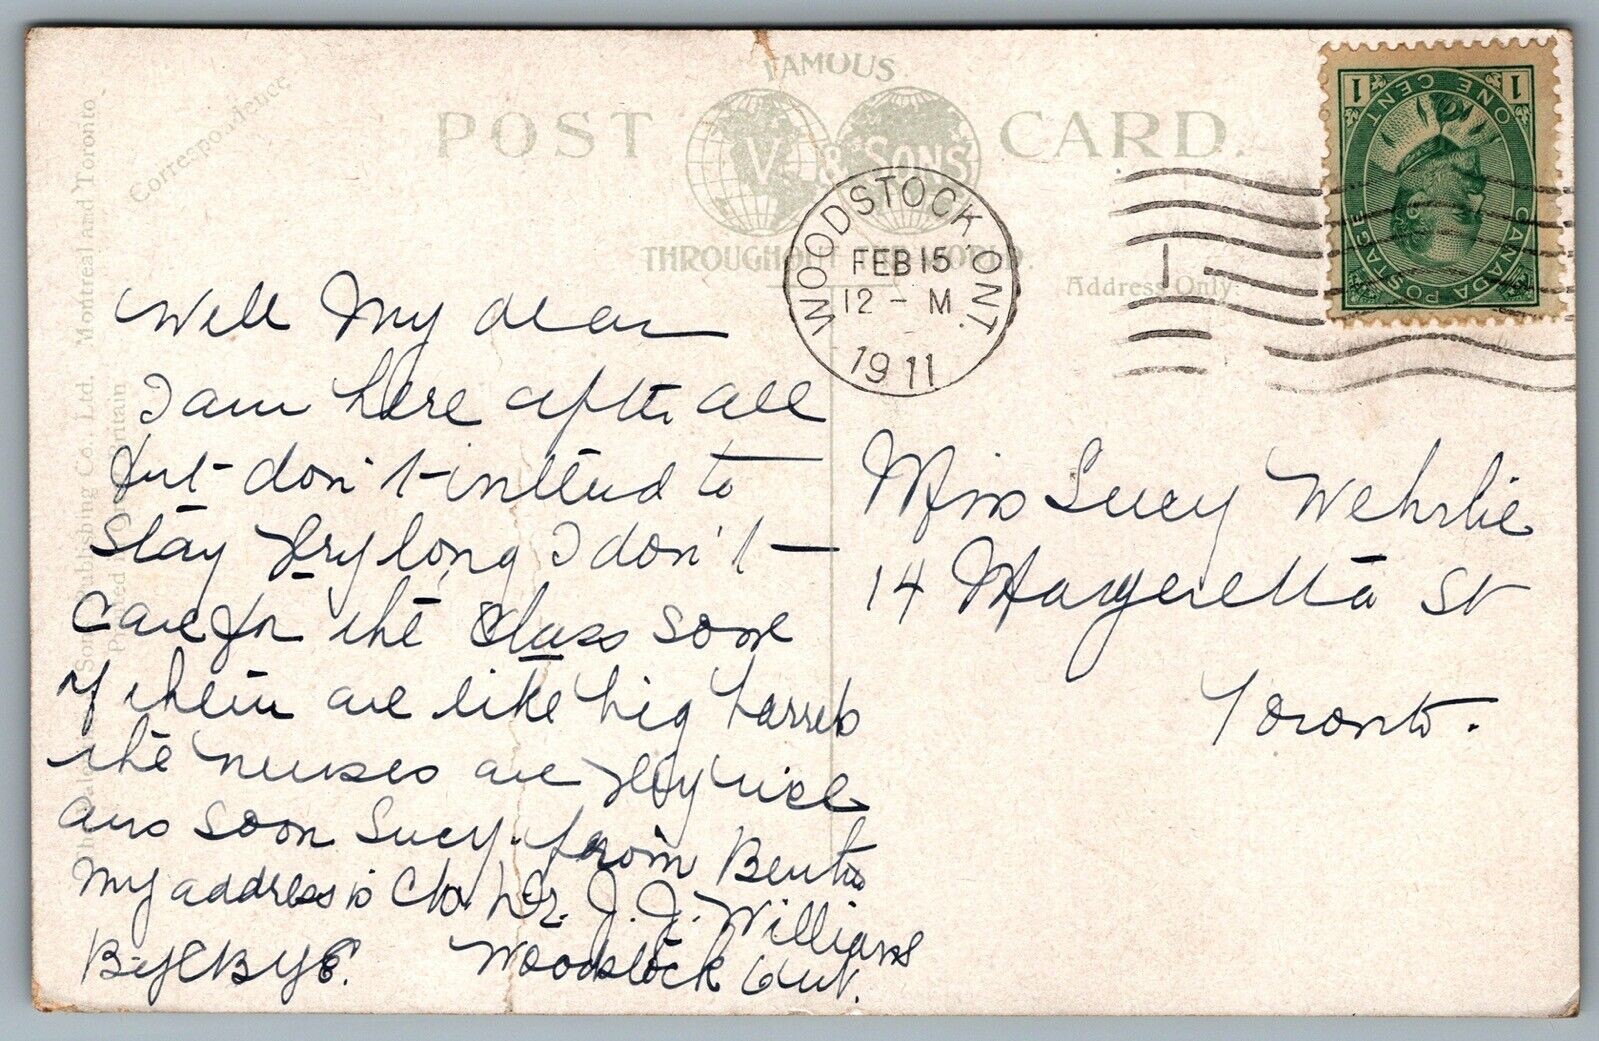 FAMOUS
POST CARD.
V. & SONS
THROUGHOUT THE WORLD.
Correspondence
Address Only
Publishing Co., Ltd. Montreal and Toronto
WOODSTOCK, ONT.
FEB 15
12 - M
1911
1 1
ONE CENT
CANADA POSTAGE
Well My dear
I am here after all
but don't intend to
stay very long I don't
care for the class some
of them are like big barrels
the nurses are very nice
ans soon Lucy. from Bertha
My address is C/o. Dr. J. J. Williams
Bye Bye. Woodstock Ont.
Miss Lucy Wehrlie
14 Margeretta St
Toronto.